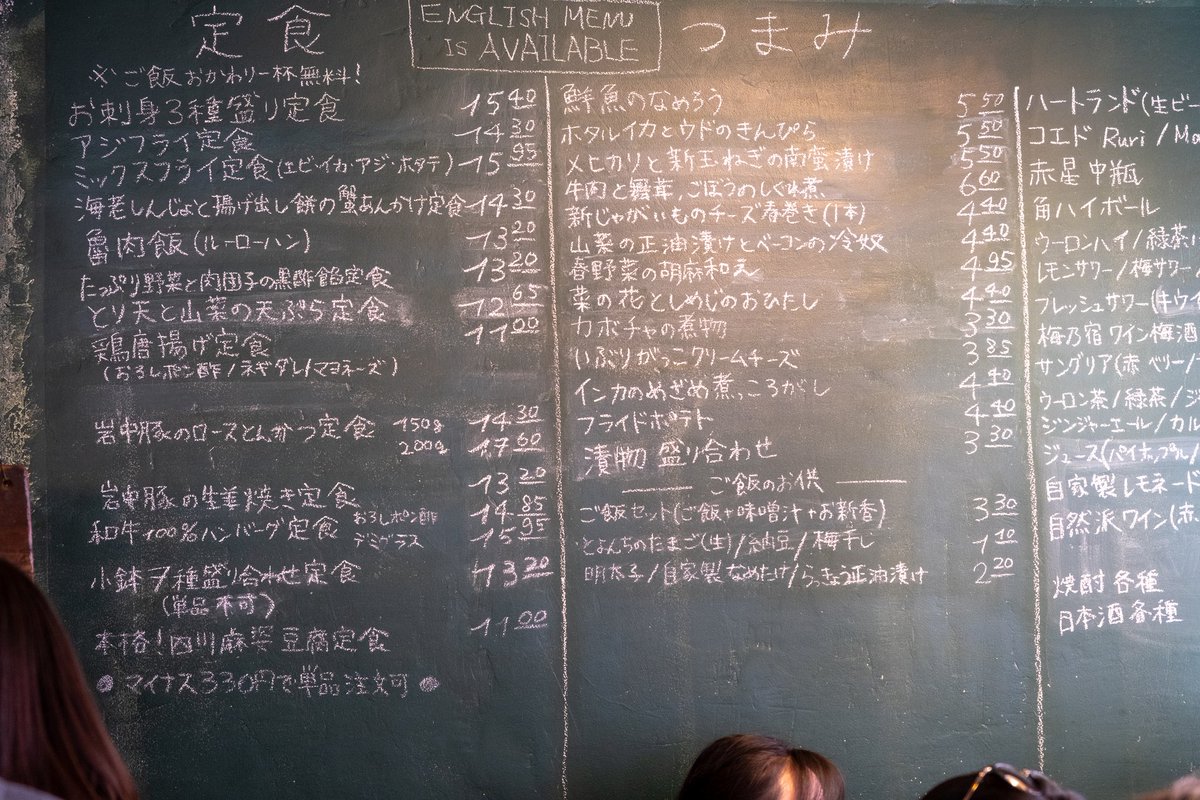 定食
※ご飯おかわり一杯無料!
お刺身3種盛り定食 1540
アジフライ定食 1430
ミックスフライ定食(エビ・イカ・アジ・ホタテ) 1595
海老しんじょと揚げ出し餅の蟹あんかけ定食 1430
魯肉飯(ルーローハン) 1320
たっぷり野菜と肉団子の黒酢餡定食 1320
とり天と山菜の天ぷら定食 1265
鶏唐揚げ定食 1100
(おろしポン酢/ネギダレ/マヨネーズ)
岩中豚のロースとんかつ定食 150g 1430
200g 1760
岩中豚の生姜焼き定食 1320
和牛100%ハンバーグ定食 おろしポン酢 1485
デミグラス 1595
小鉢7種盛り合わせ定食 1320
(単品不可)
本格!四川麻婆豆腐定食 1100
●マイナス330円で単品注文可●
ENGLISH MENU
IS AVAILABLE
つまみ
鮮魚のなめろう 550
ホタルイカとウドのきんぴら 550
メヒカリと新玉ねぎの南蛮漬け 550
牛肉と舞茸、ごぼうのしぐれ煮 660
新じゃがいものチーズ春巻き(1本) 440
山菜の正油漬けとベーコンの冷奴 440
春野菜の胡麻和え 495
菜の花としめじのおひたし 440
カボチャの煮物 330
いぶりがっこクリームチーズ 385
インカのめざめ煮っころがし 440
フライドポテト 440
漬物盛り合わせ 330
ご飯のお供
ご飯セット(ご飯+味噌汁+お新香) 330
とよんちのたまご(生)/納豆/梅干し 110
明太子/自家製なめたけ/らっきょう正油漬け 220
ハートランド(生ビー
コエド Ruri / Ma
赤星中瓶
角ハイボール
ウーロンハイ/緑茶
レモンサワー/梅サワー
フレッシュサワー(キウイ
梅乃宿ワイン梅酒
サングリア(赤 ベリー/
ウーロン茶/緑茶/ジ
ジンジャーエール/カル
ジュース(パイナップル/
自家製レモネード
自然派ワイン(赤
焼酎各種
日本酒各種